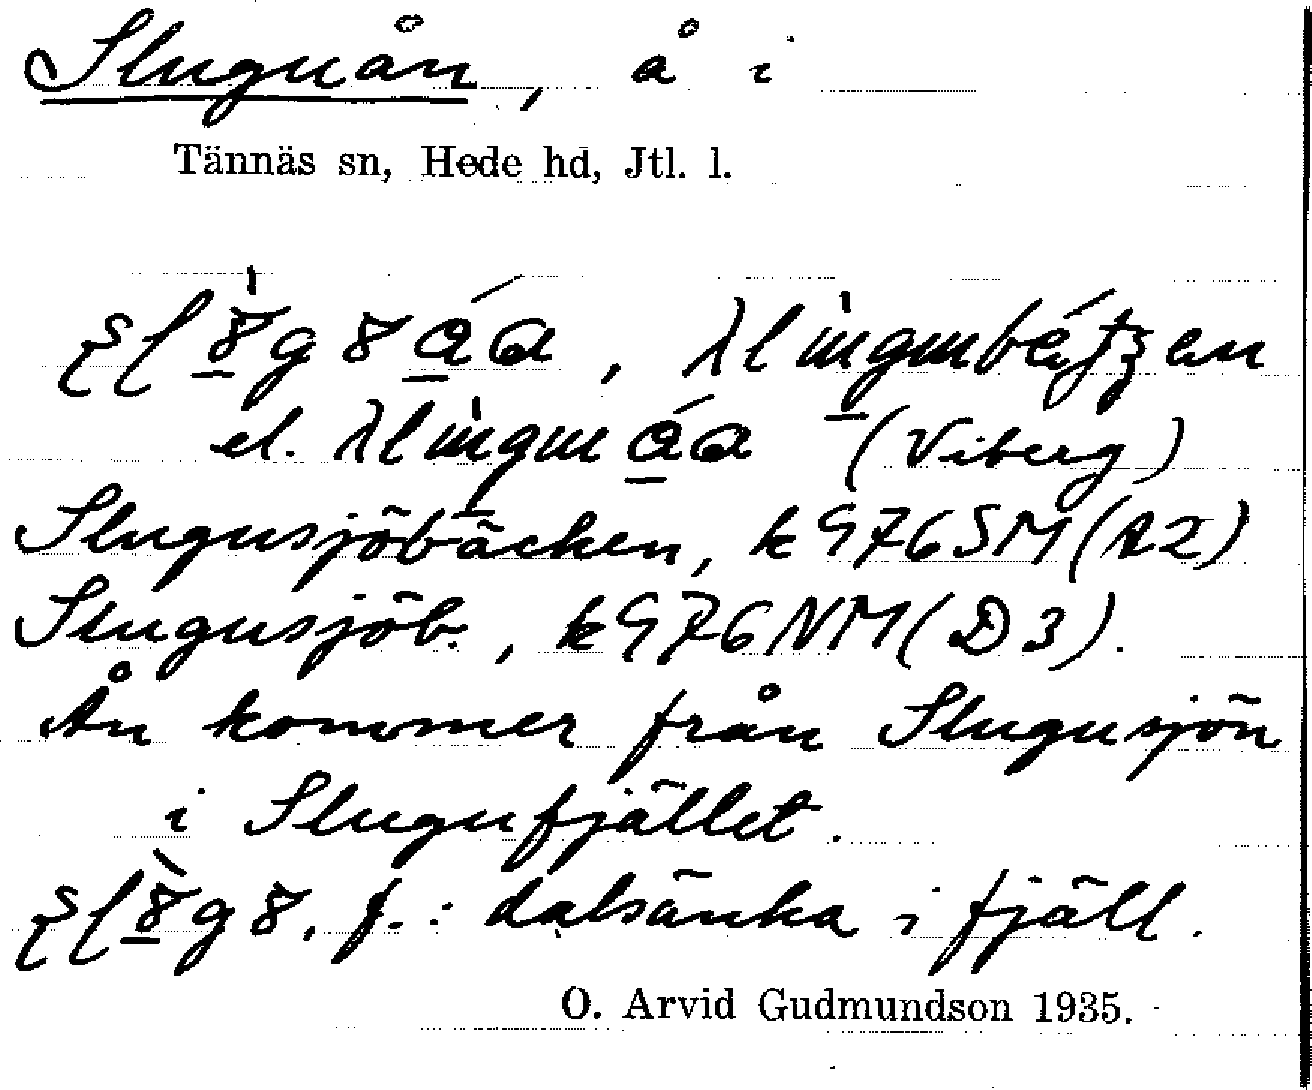 Sluguån, å i
Tännäs sn, Hede hd, Jtl. l.
el. (Viberg)
Slugusjöbäcken, k 976 SM (A2)
Slugusjöb., k 976 NM (D3).
Ån kommer från Slugusjön
i Slugufjället.
f.: dalsänka i fjäll.
O. Arvid Gudmundson 1935.